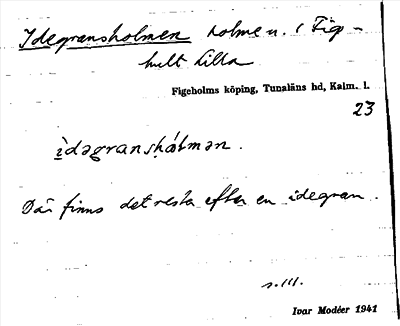 Idegransholmen holme u. / Fig-
hult Lilla
Figeholms köping, Tunaläns hd, Kalm. l.
23
ìdəgransḥåtmən.
Där finns det rester efter en idegran.
s. 111.
Ivar Modéer 1941